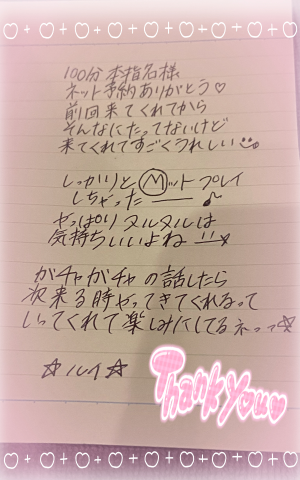 100分 本指名様
ネット予約ありがとう♡
前回来てくれてから
そんなにたってないけど
来てくれてすごくうれしい
しっかりとⓂットプレイ
しちゃったーー♪
やっぱりヌルヌルは
気持ちいいよね
ガチャガチャの話したら
次来る時やってきてくれるなって
いってくれて楽しみにしてるネっっ☆
☆ルイ☆
Thank you